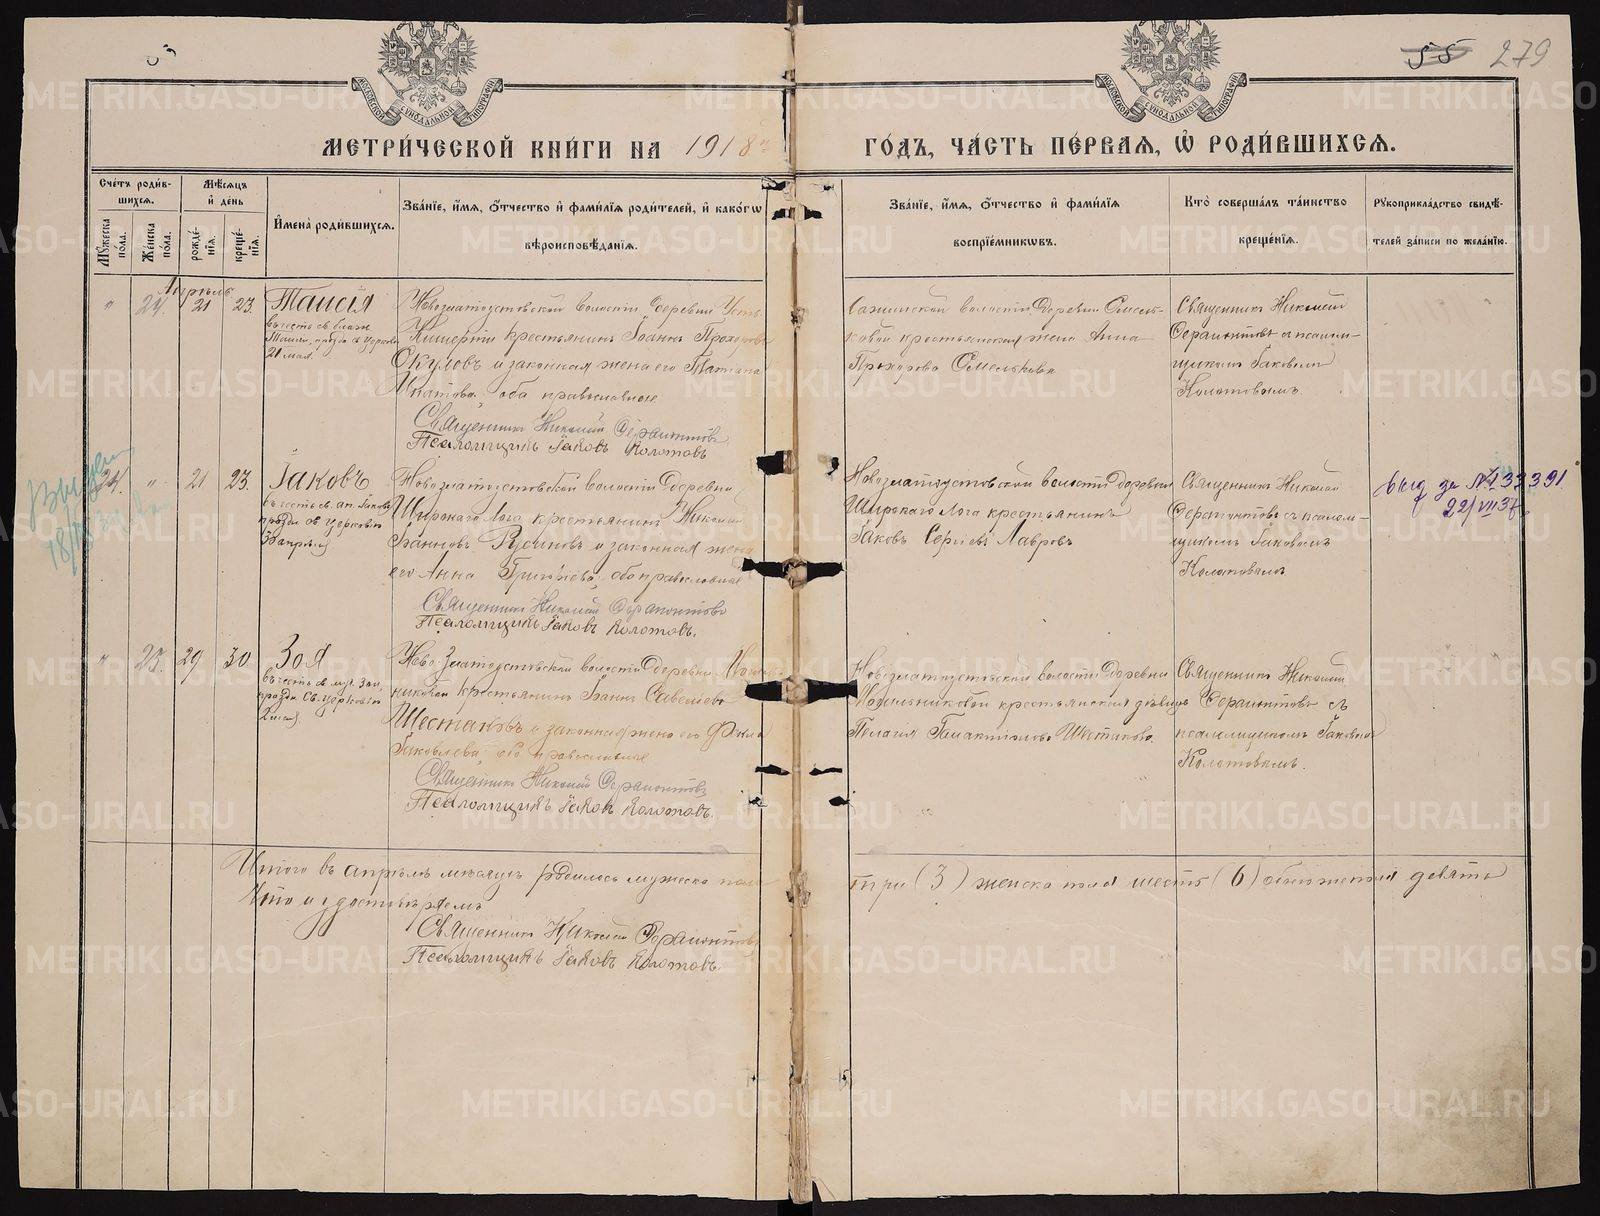 55 279
МОСКОВСКОЙ СѴНОДАЛЬНОЙ ТИПОГРАФІИ
МОСКОВСКОЙ СѴНОДАЛЬНОЙ ТИПОГРАФІИ
МЕТРИ́ЧЕСКОЙ КНИ́ГИ НА 1918 й
ГО́ДЪ, ЧА́СТЬ ПЕ́РВАЯ, Ѿ РОДИ́ВШИХСЯ.
Сче́тъ роди́в-
шихся.
Мѣ́сяцъ
и҆ де́нь
Мꙋ́жеска пола.
Же́нска пола.
рожде́-
нїя.
креще́-
нїя.
И҆мена̀ роди́вшихся.
Зва́нїе, и҆́мя, ѻ҆́тчество и҆ фами́лїя роди́телей, и҆ како́гѡ
вѣроисповѣ́данїя.
Зва́нїе, и҆́мя, ѻ҆́тчество и҆ фами́лїя
воспрїе́мникѡвъ.
Кто̀ соверша́лъ та́инство
креще́нїя.
Рꙋкоприкла́дство свидѣ́-
телей за́писи по жела́нїю.
Апрѣль
" 24. 21 23. Таисія
въ честь св. блаж.
21 мая.
Новозлатоустовской волости деревни Усть-
Кишерти крестьянинъ Іоаннъ Прохоровъ
Окуловъ и законная жена его Татiана
Игнатова, оба православные
Священникъ Николай Ферапонтовъ
Псаломщикъ Іаковъ Колотовъ
волости деревни Омель-
ковой крестьянская жена Анна
Прохорова Омелькова
Священникъ Николай
Ферапонтовъ съ псалом-
щикомъ Іаковомъ
Колотовымъ.
24. " 21 23. Іаковъ
въ честь св. ап. Іакова
празд. св. церковію
30 апрѣля
Новозлатоустовской волости деревни
Широкаго Лога крестьянинъ Николай
Іоанновъ Русиновъ и законная жена
его Анна Григорьева, оба православные
Священникъ Николай Ферапонтовъ
Псаломщикъ Іаковъ Колотовъ.
Новозлатоустовской волости деревни
Широкаго Лога крестьянинъ
Іаковъ Сергіевъ Лавровъ
Священникъ Николай
Ферапонтовъ съ псалом-
щикомъ Іаковомъ
Колотовымъ
выд за № 133391
22/VII 37
" 25. 29 30. Зоя
въ честь св. муч. Зои,
празд. св. церковію
2 мая.
Новозлатоустовской волости деревни
крестьянинъ Іоаннъ Савельевъ
Шестаковъ и законная жена его Фекла
Іаковлева, оба православные
Священникъ Николай Ферапонтовъ
Псаломщикъ Іаковъ Колотовъ.
Новозлатоустовской волости деревни
Могильниковой крестьянская дѣвица
Пелагія Галактіонова Шестакова
Священникъ Николай
Ферапонтовъ съ
псаломщикомъ Іаковомъ
Колотовымъ.
Итого въ апрѣлѣ мѣсяцѣ родилось мужеска пола
три (3) женска пола шесть (6) обоего пола девять
Что и удостовѣряемъ
Священникъ Николай Ферапонтовъ
Псаломщикъ Іаковъ Колотовъ.
METRIKI.GASO-URAL.RU